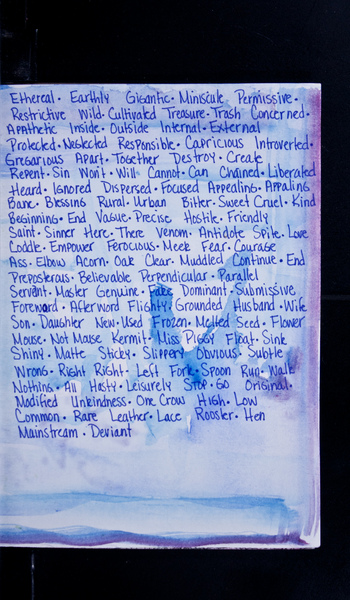 Ethereal · Earthly Gigantic · Miniscule Permissive ·
Restrictive Wild · Cultivated Treasure · Trash Concerned ·
Apathetic Inside · Outside Internal · External
Protected · Neglected Responsible · Capricious Introverted ·
Gregarious Apart · Together Destroy · Create
Repent · Sin Won't · Will Cannot · Can Chained · Liberated
Heard · Ignored Dispersed · Focused Appealing · Appaling
Bane · Blessing Rural · Urban Bitter · Sweet Cruel · Kind
Beginning · End Vague · Precise Hostile · Friendly
Saint · Sinner Here · There Venom · Antidote Spite · Love
Coddle · Empower Ferocious · Meek Fear · Courage
Ass · Elbow Acorn · Oak Clear · Muddled Continue · End
Preposterous · Believable Perpendicular · Parallel
Servant · Master Genuine · Fake Dominant · Submissive
Foreword · Afterword Flighty · Grounded Husband · Wife
Son · Daughter New · Used Frozen · Melted Seed · Flower
Mouse · Not Mouse Kermit · Miss Piggy Float · Sink
Shiny · Matte Sticky · Slippery Obvious · Subtle
Wrong · Right Right · Left Fork · Spoon Run · Walk
Nothing · All Hasty · Leisurely Stop · Go Original ·
Modified Unkindness · One Crow High · Low
Common · Rare Leather · Lace Rooster · Hen
Mainstream · Deviant